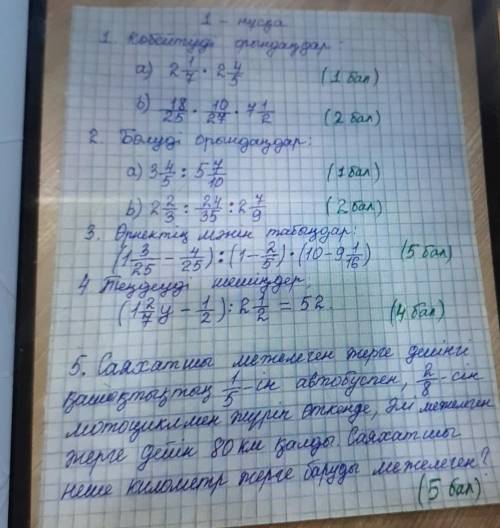 1 - нұсқа
1. Көбейтуді орындаңдар:
a) 2 1/7 · 2 4/5 (1 бал)
b) 18/25 · 10/27 · 7 1/2 (2 бал)
2. Бөлуді орындаңдар:
a) 3 4/5 : 5 7/10 (1 бал)
b) 2 2/3 : 24/35 : 2 7/9 (2 бал)
3. Өрнектің мәнін табыңдар:
(1 3/25 - 4/25) : (1 - 2/5) · (10 - 9 1/16) (5 бал)
4 Теңдеуді шешіңдер.
(1 2/7 y - 1/2) : 2 1/2 = 52. (4 бал)
5. Саяхатшы межелеген жерге дейінгі
қашықтықтың 1/5 - ін автобуспен, 2/8 - сін
мотоциклмен жүріп өткенде, әлі межелеген
жерге дейін 80 км қалды. Саяхатшы
неше километр жерге баруды межелеген?
(5 бал)